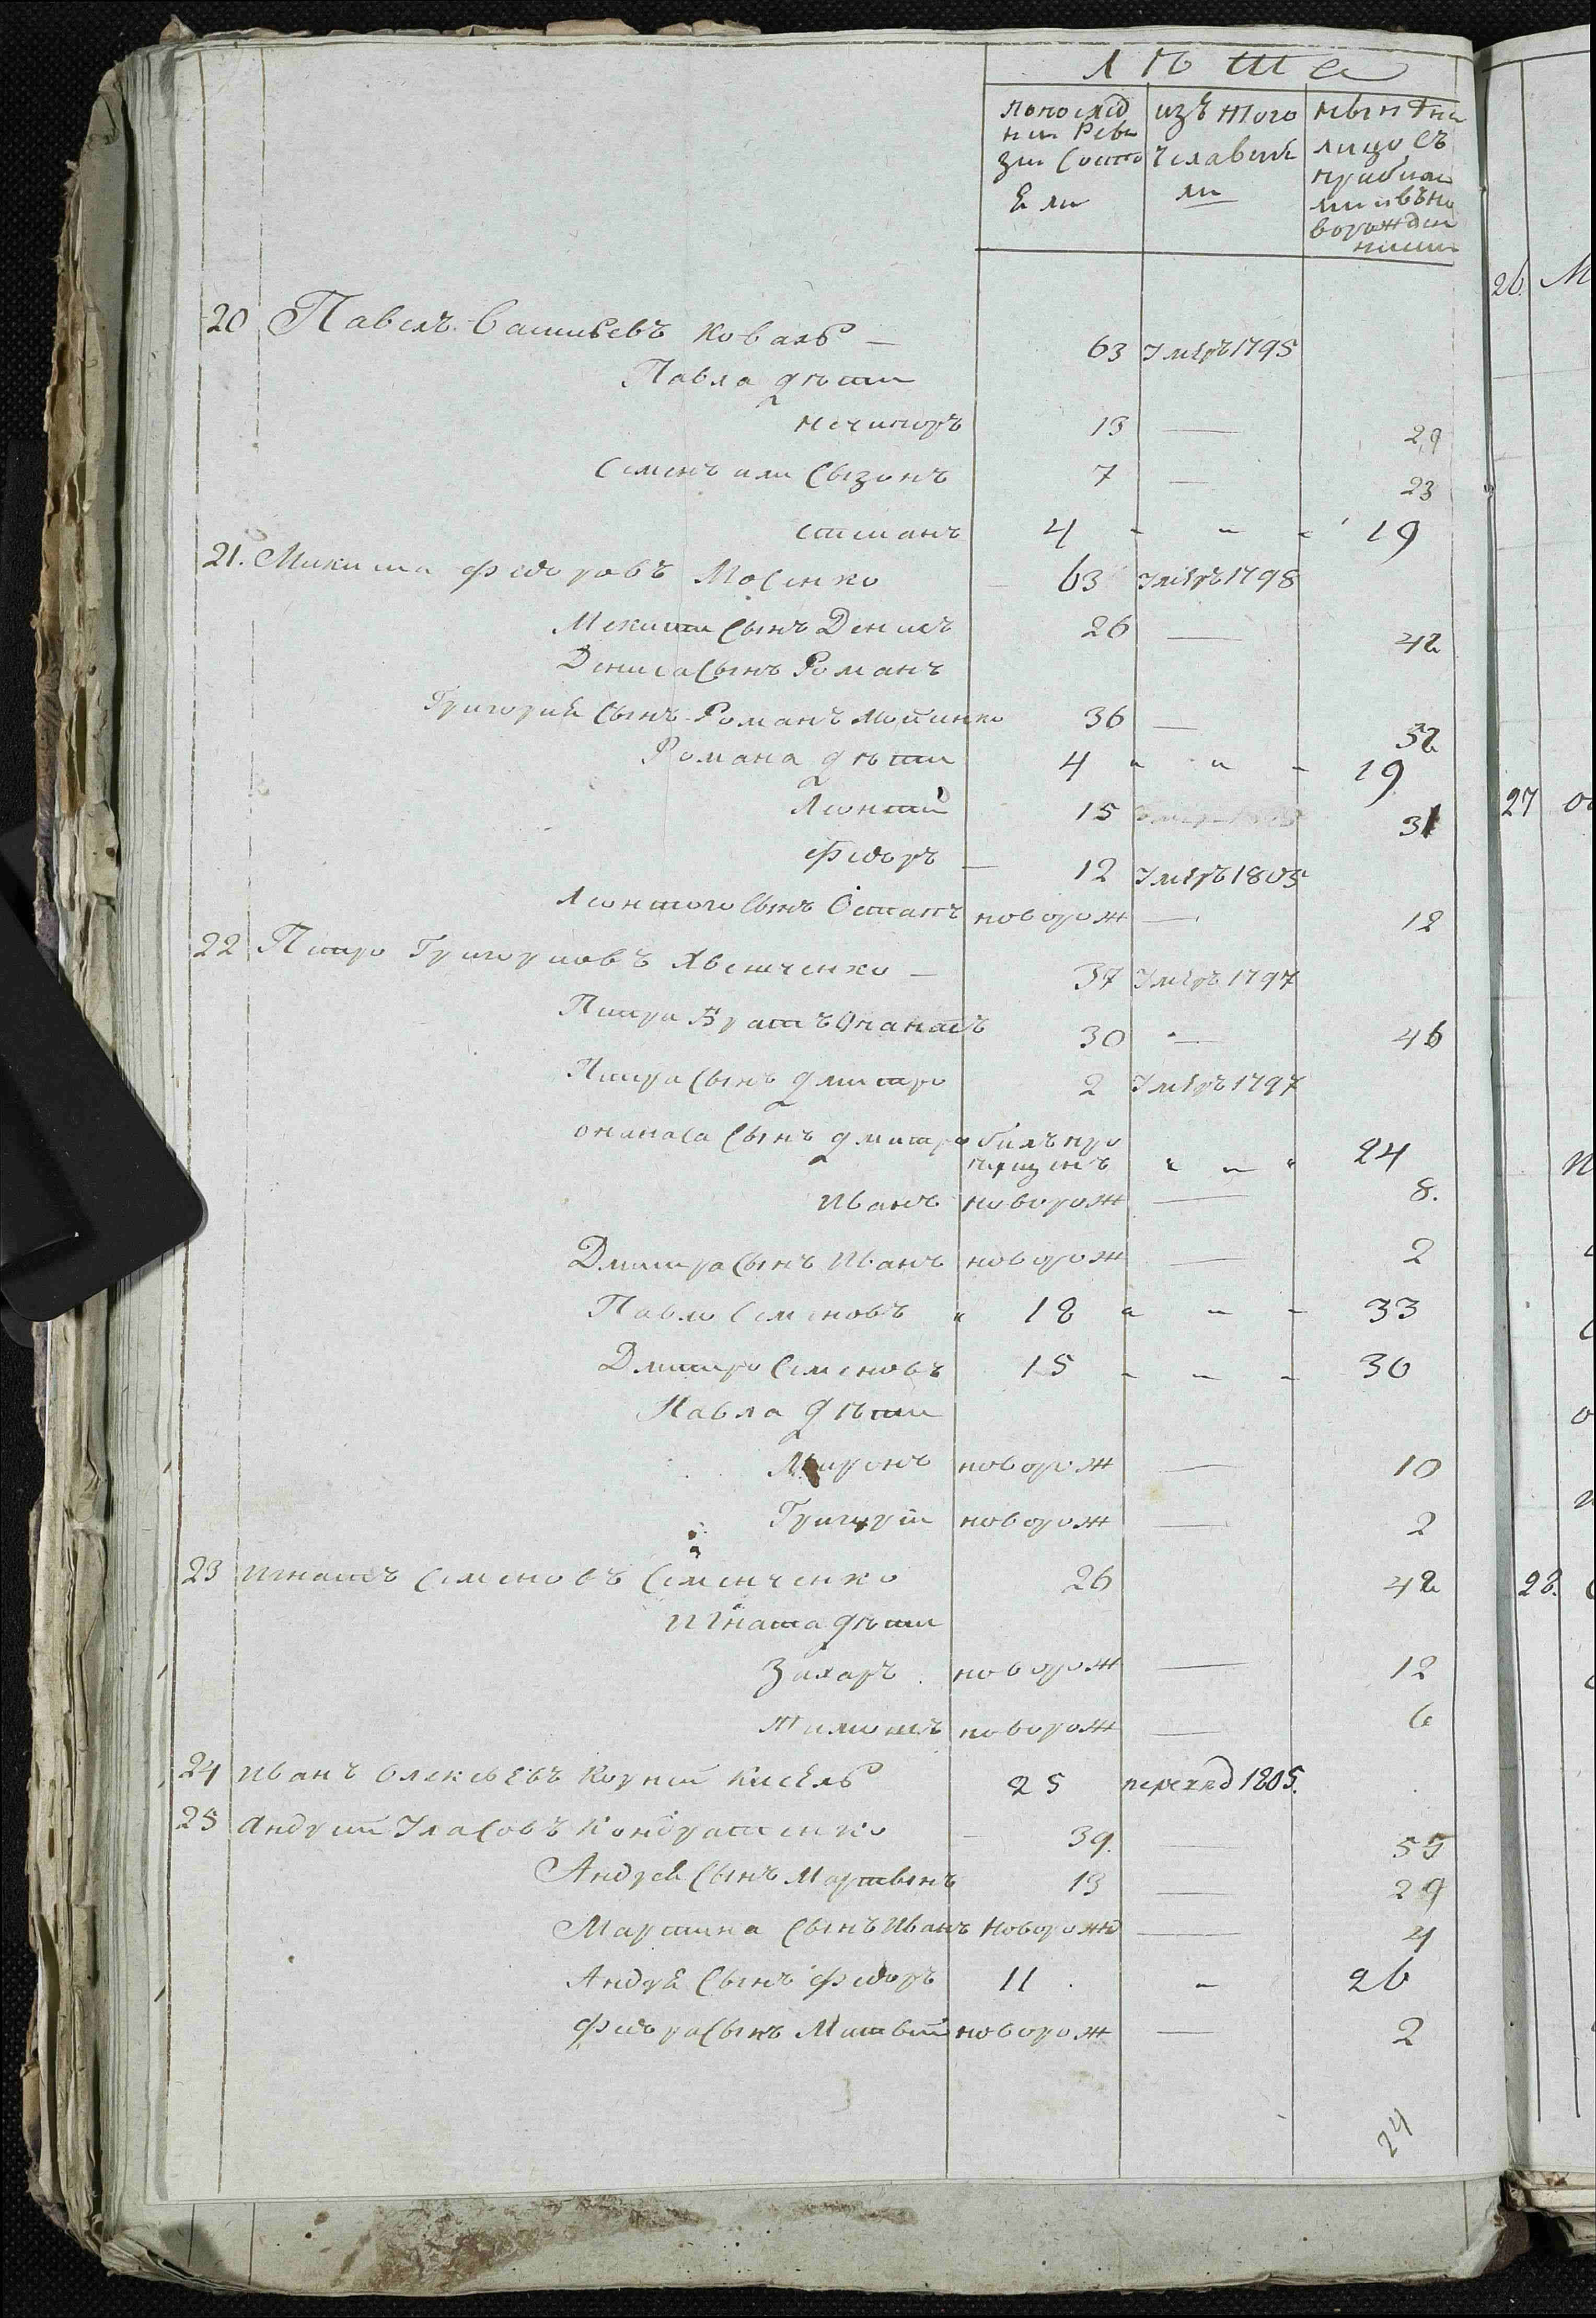 лѣта
по послѣд изъ того нынѣ на
ней Реви числа выбы лицо съ
зіи состо ли прибылы
яли ми и въно
ворожден
ними
20 Павелъ Васильевъ Коваль — 63 Умѣръ 1795
Павла дѣти
Нечипоръ 13 — 29
Семенъ или Сызонъ 7 — 23
степанъ 4 " " " 19
21. Микита Федоровъ Мосенко 63 Умѣръ 1798
Микити Сынъ Денисъ 26 — 42
Дениса Сынъ Романъ
Григорія Сынъ Романъ Мосинко 36 — 52
Романа дѣти 4 " " " 19
Леонтій 15 31
Федоръ — 12 Умѣръ 1805
Леонтого Сынъ Остапъ новорож — 12
22 Петро Григоріовъ Явтченко — 37 Умѣръ 1797
Петра Братъ Опанасъ 30 — 46
Петра Сынъ дмитро 2 Умѣръ 1797
опанаса Сынъ дмитро билъ про
пущенъ " " " 24
Иванъ новорож — 8.
Дмитра Сынъ Иванъ новорож — 2
Павло Семеновъ " 18 " " " 33
Дмитро Семеновъ 15 " " " 30
Павла дѣти
Миронъ новорож — 10
Григорій новорож — 2
23 Игнатъ Семеновъ Семенченко 26 42
Игната дѣти
Захаръ новорож — 12
Тимошъ новорож — 6
24 Иванъ Олексѣевъ Корній Кисѣль 25 перехд 1805.
25 Андрей Уласовъ Кондратенко — 39. — 55
Андрея Сынъ Мартынъ 13 — 29
Мартина Сынъ Иванъ Новорожд — 4
Андрѣя Сынъ Федоръ 11 — 26
Федора Сынъ Матвій новорож — 2
24
26. М
27
28.